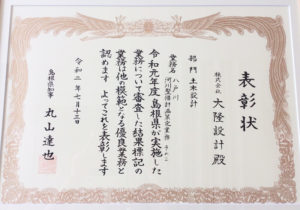 表彰状
株式会社 大隆設計 殿
部門 土木設計
業務名 八戸川
令和元年度 島根県が実施した
業務について審査した結果標記の
業務は他の模範となる優良業務と
認めます よってこれを表彰します
令和二年七月十三日
島根県知事 丸山達也